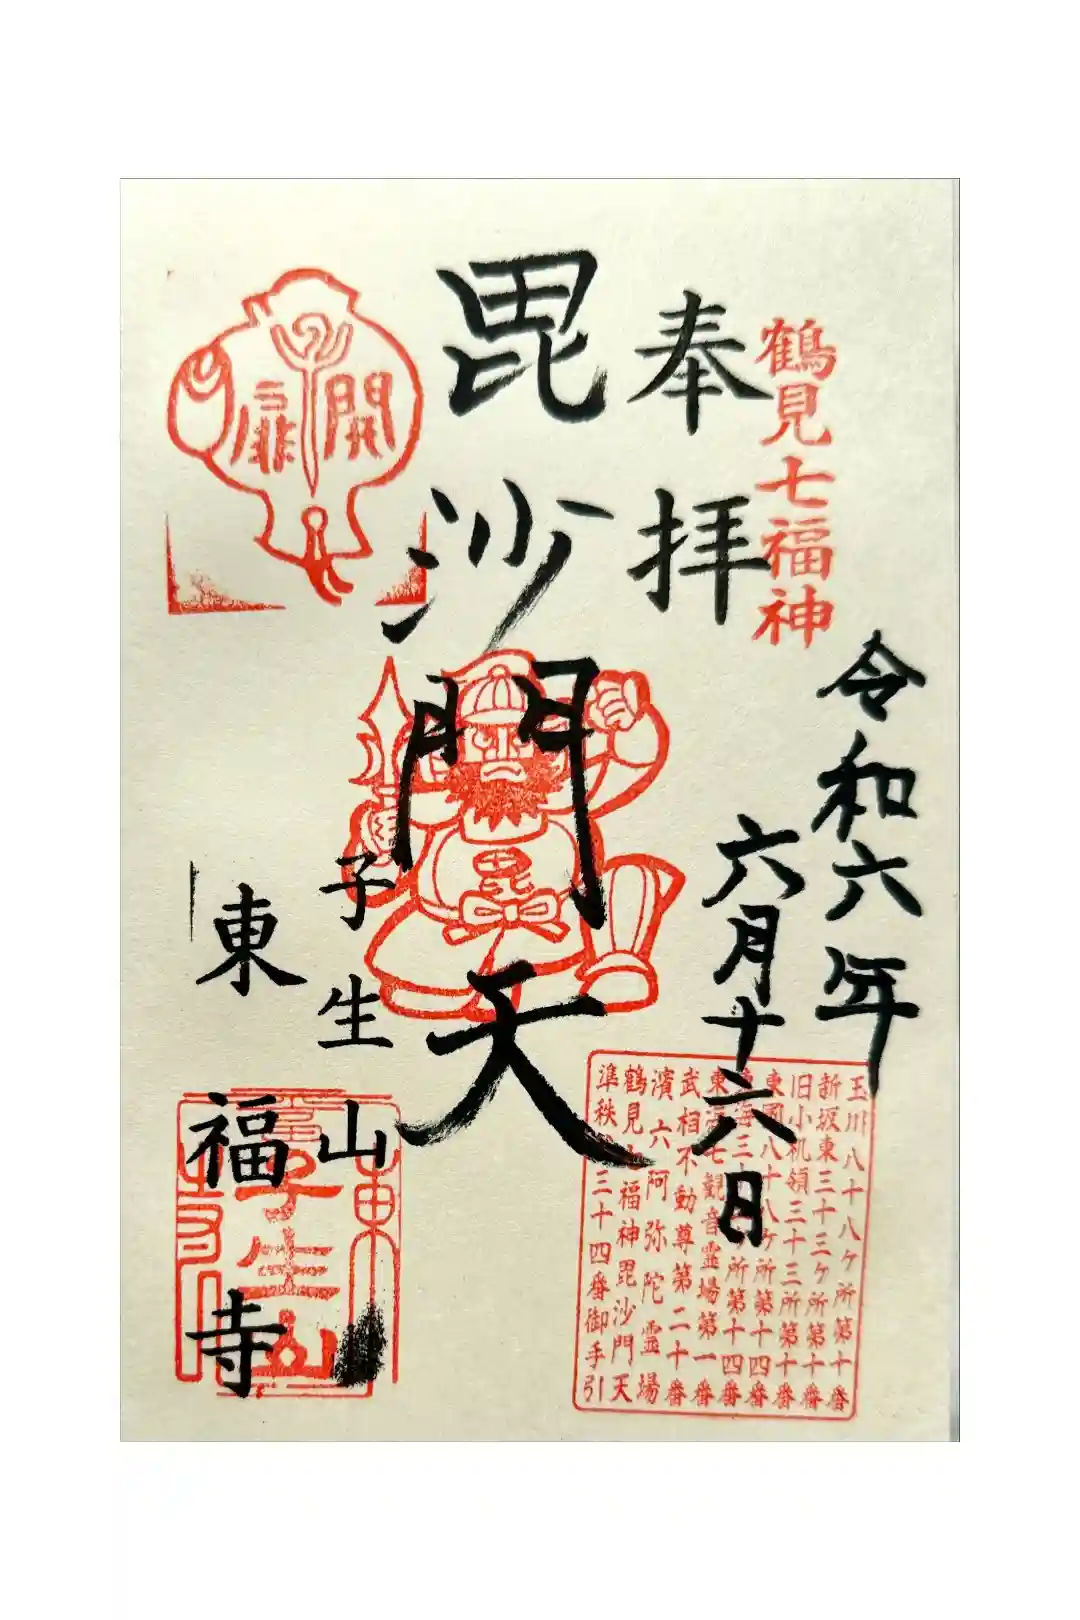 鶴見七福神
奉拝
令和六年
六月十六日
毘沙門天
毘
開扉
子生山
東福寺
玉川八十八ケ所第十番
新坂東三十三ケ所第十番
旧小机領三十三所第十番
東國八十八ケ所第十四番
海三十 所第十四番
東 七観音霊場第一番
武相不動尊第二十番
濱六阿弥陀霊場
鶴見七福神毘沙門天
準秩 三十四番御手引
東 子生山 寺